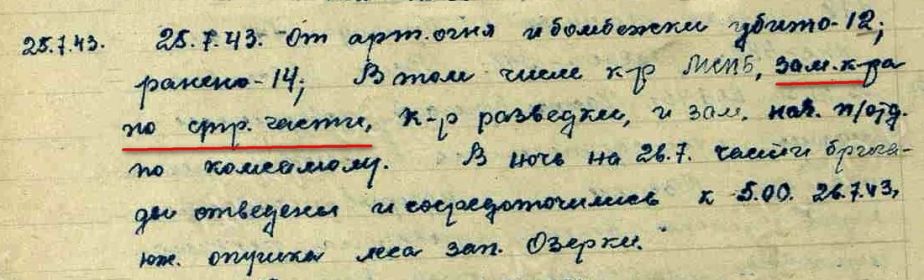 25.7.43. 25.7.43. От арт. огня и бомбежки убито-12;
ранено-14; В том числе к-р МСПБ, зам. к-ра
по стр. части, к-р разведки, и зам. нач. п/отд.
по комсамолу. В ночь на 26.7. части брига-
ды отведены и сосредоточились к 5.00. 26.7.43,
юж. опушка леса зап. Озерки.